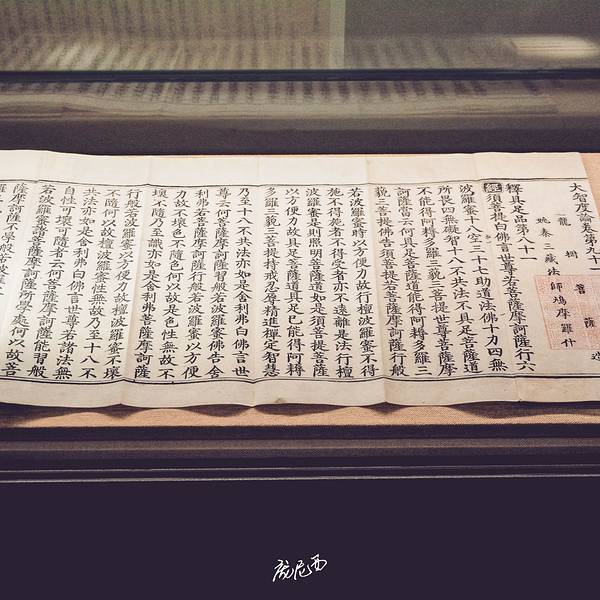 大智度論卷第九十一
龍樹菩薩造
姚秦三藏法師鳩摩羅什
釋具足品第八十一
經須菩提白佛言世尊若菩薩摩訶薩行六
波羅蜜十八空三十七助道法佛十力四無
所畏四無礙智十八不共法不具足菩薩道
不能得阿耨多羅三藐三菩提世尊菩薩摩
訶薩當云何具足菩薩道能得阿耨多羅三
藐三菩提佛告須菩提若菩薩摩訶薩行般
若波羅蜜時以方便力故行檀波羅蜜不得
施不得施者不得受者亦不遠離是法行檀
波羅蜜是則照明菩薩道如是須菩提菩薩
以方便力故具足菩薩道具足已能得阿耨
多羅三藐三菩提持戒忍辱精進禪定智慧
乃至十八不共法亦如是舍利弗白佛言世
尊云何菩薩摩訶薩習般若波羅蜜佛告舍
利弗若菩薩摩訶薩行般若波羅蜜以方便
力故不壞色不隨色何以故是色性無故不
壞不隨乃至識亦如是舍利弗菩薩摩訶薩
行般若波羅蜜以方便力故檀波羅蜜不壞
不隨何以故檀波羅蜜性無故乃至十八不
共法亦如是舍利弗白佛言世尊若諸法無
自性可壞可隨者云何菩薩摩訶薩能習般
若波羅蜜諸菩薩摩訶薩所學處何以故菩
薩摩訶薩不學般若波羅
庞尼西